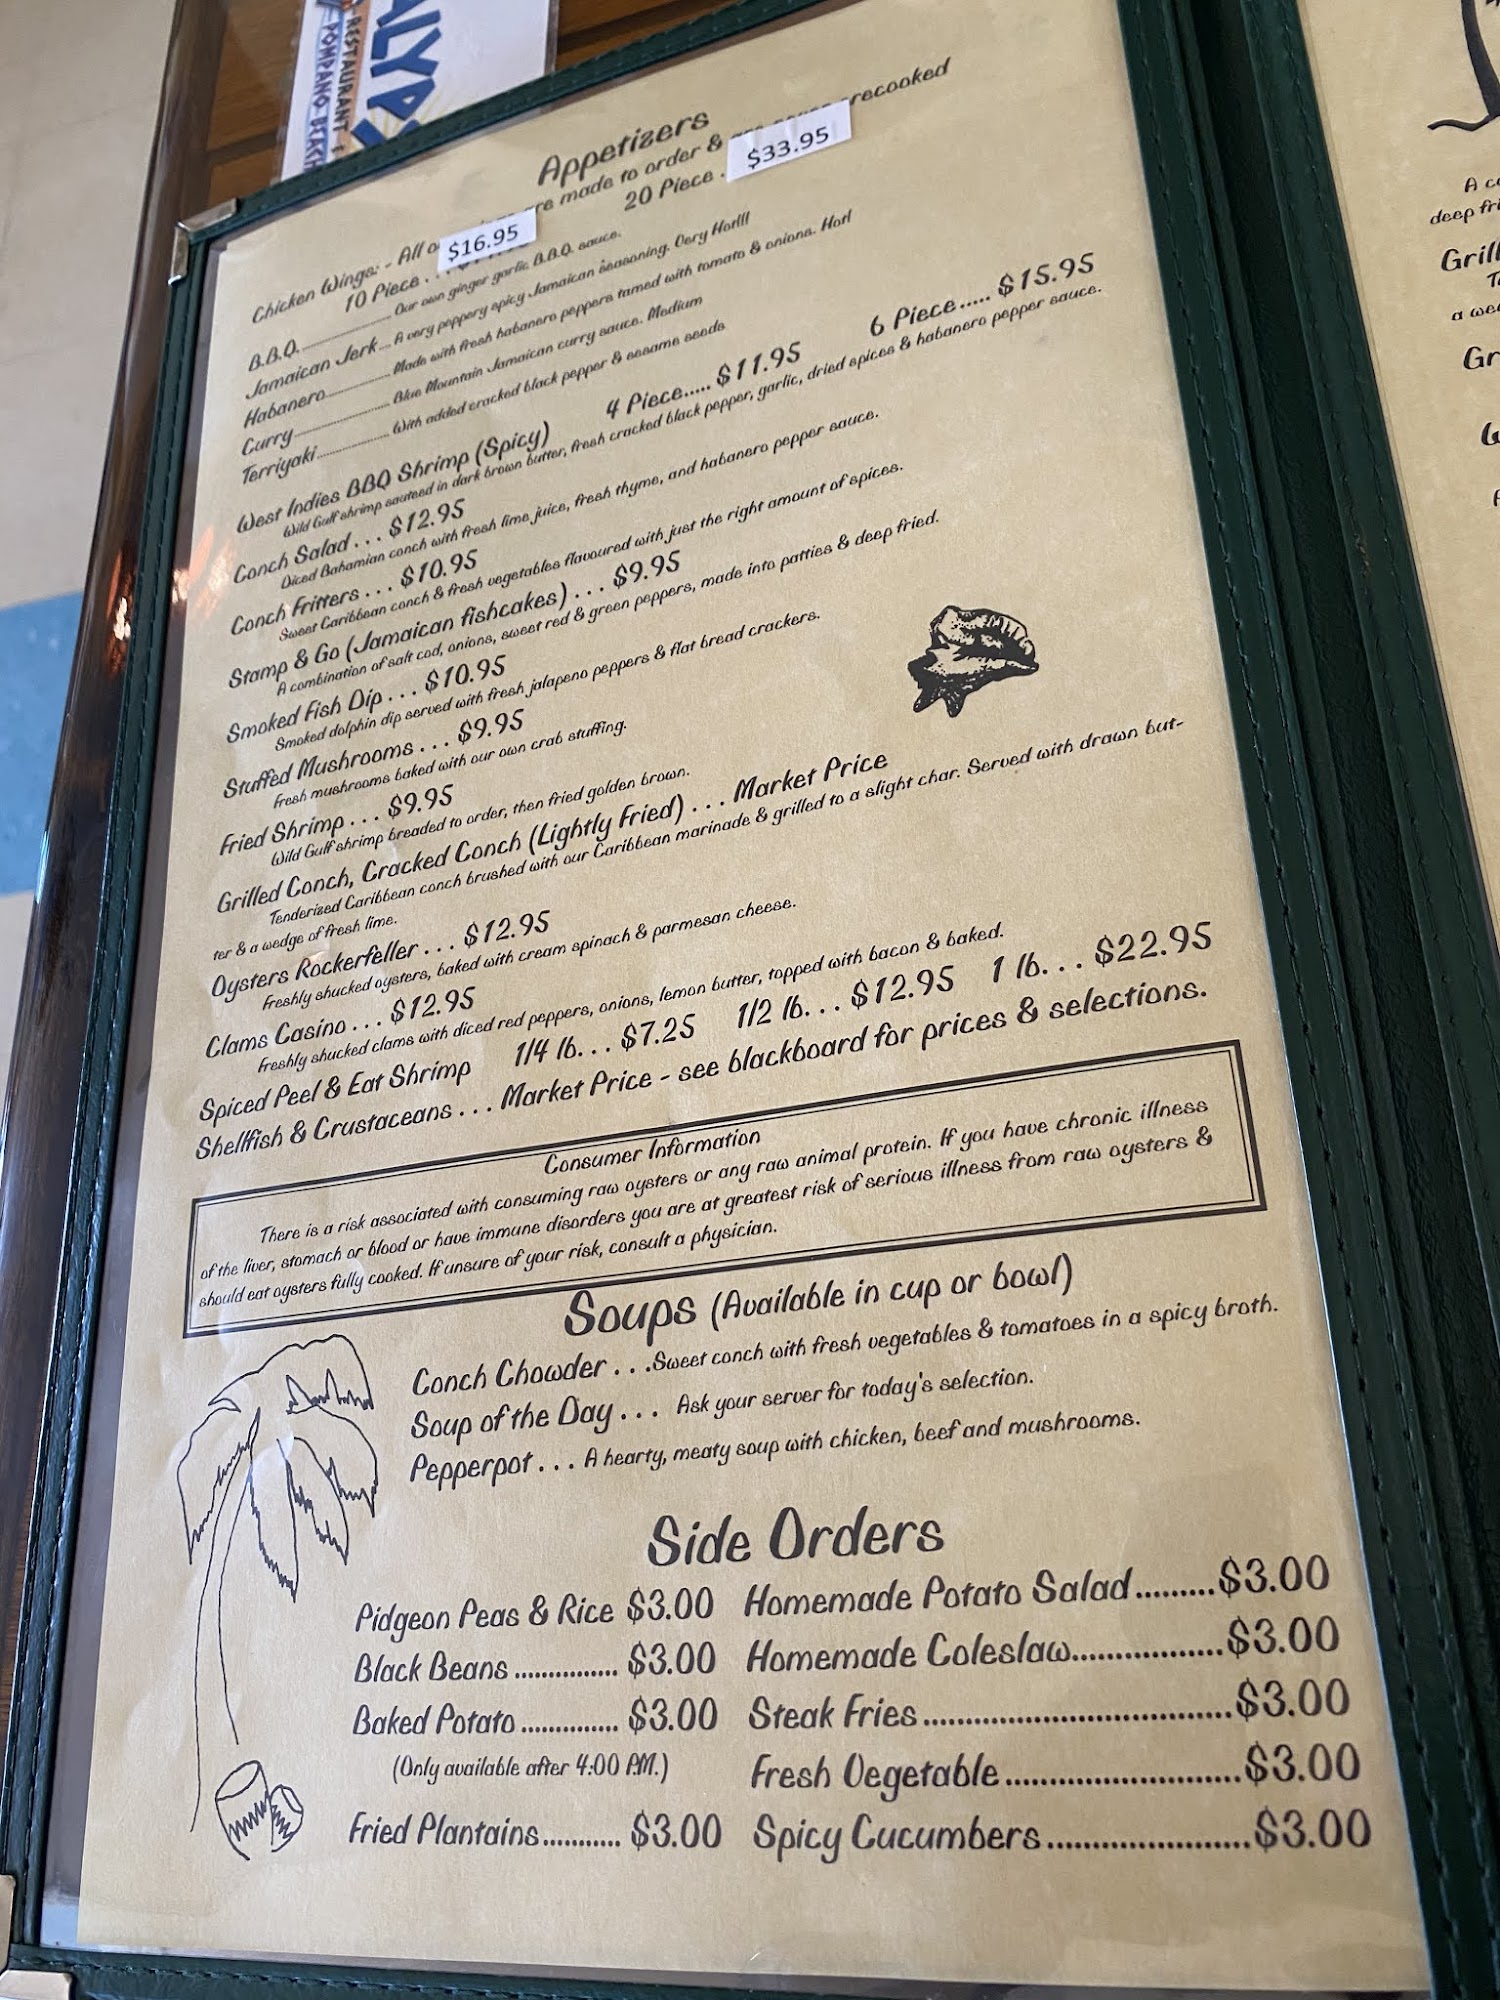 ALYP
RESTAURANT
POMPANO BEACH
Appetizers
Chicken Wings: - All are made to order & precooked
10 Piece . . $16.95 20 Piece . $33.95
B.B.Q. Our own ginger garlic B.B.Q. sauce.
Jamaican Jerk... A very peppery spicy Jamaican seasoning. Very Hot!!!
Habanero Made with fresh habanero peppers tamed with tomato & onions. Hot!
Curry Blue Mountain Jamaican curry sauce. Medium
Terriyaki With added cracked black pepper & sesame seeds
West Indies BBQ Shrimp (Spicy) 4 Piece..... $11.95 6 Piece..... $15.95
Wild Gulf shrimp sauteed in dark brown butter, fresh cracked black pepper, garlic, dried spices & habanero pepper sauce.
Conch Salad . . . $12.95
Diced Bahamian conch with fresh lime juice, fresh thyme, and habanero pepper sauce.
Conch Fritters . . . $10.95
Sweet Caribbean conch & fresh vegetables flavoured with just the right amount of spices.
Stamp & Go (Jamaican fishcakes) . . . $9.95
A combination of salt cod, onions, sweet red & green peppers, made into patties & deep fried.
Smoked Fish Dip . . . $10.95
Smoked dolphin dip served with fresh jalapeno peppers & flat bread crackers.
Stuffed Mushrooms . . . $9.95
Fresh mushrooms baked with our own crab stuffing.
Fried Shrimp . . . $9.95
Wild Gulf shrimp breaded to order, then fried golden brown.
Grilled Conch, Cracked Conch (Lightly Fried) . . . Market Price
Tenderized Caribbean conch brushed with our Caribbean marinade & grilled to a slight char. Served with drawn but-
ter & a wedge of fresh lime.
Oysters Rockerfeller . . . $12.95
Freshly shucked oysters, baked with cream spinach & parmesan cheese.
Clams Casino . . . $12.95
Freshly shucked clams with diced red peppers, onions, lemon butter, topped with bacon & baked.
Spiced Peel & Eat Shrimp 1/4 lb. . . $7.25 1/2 lb. . . $12.95 1 lb. . . $22.95
Shellfish & Crustaceans . . . Market Price - see blackboard for prices & selections.
Consumer Information
There is a risk associated with consuming raw oysters or any raw animal protein. If you have chronic illness
of the liver, stomach or blood or have immune disorders you are at greatest risk of serious illness from raw oysters &
should eat oysters fully cooked. If unsure of your risk, consult a physician.
Soups (Available in cup or bowl)
Conch Chowder . . .Sweet conch with fresh vegetables & tomatoes in a spicy broth.
Soup of the Day . . . Ask your server for today's selection.
Pepperpot . . . A hearty, meaty soup with chicken, beef and mushrooms.
Side Orders
Pidgeon Peas & Rice $3.00 Homemade Potato Salad.........$3.00
Black Beans ............... $3.00 Homemade Coleslaw.................$3.00
Baked Potato .............. $3.00 Steak Fries..................................$3.00
(Only available after 4:00 P.M.) Fresh Vegetable..........................$3.00
Fried Plantains........... $3.00 Spicy Cucumbers.......................$3.00
deep fri
Grill
a wee
Gr